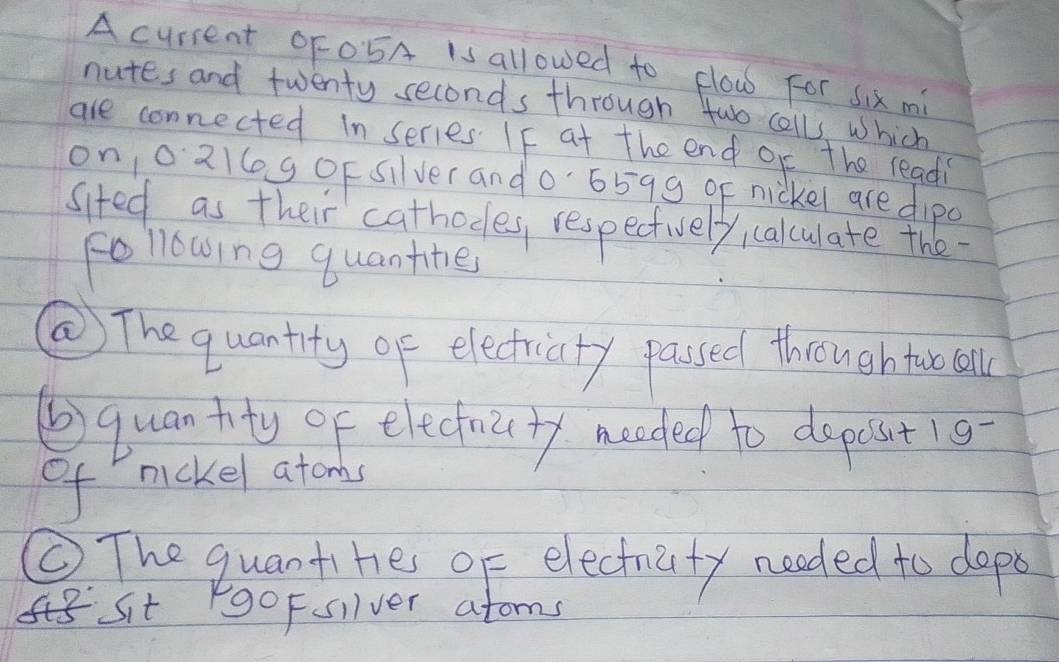 A current OF 0.5A is allowed to flow For six mi
nutes and twenty seconds through two cells which
are connected in series. IF at the end OF the readi
on, 0.216g OF silver and 0.659g OF nickel are dipo
sited as their cathodes, respectively, calculate the-
Following quantities
(a) The quantity OF electricity passed through two cells
(b) quantity OF electricity needed to deposit 1g-
of nickel atoms
(c) The quantities OF electricity needed to depo
sit 1g OF silver atoms